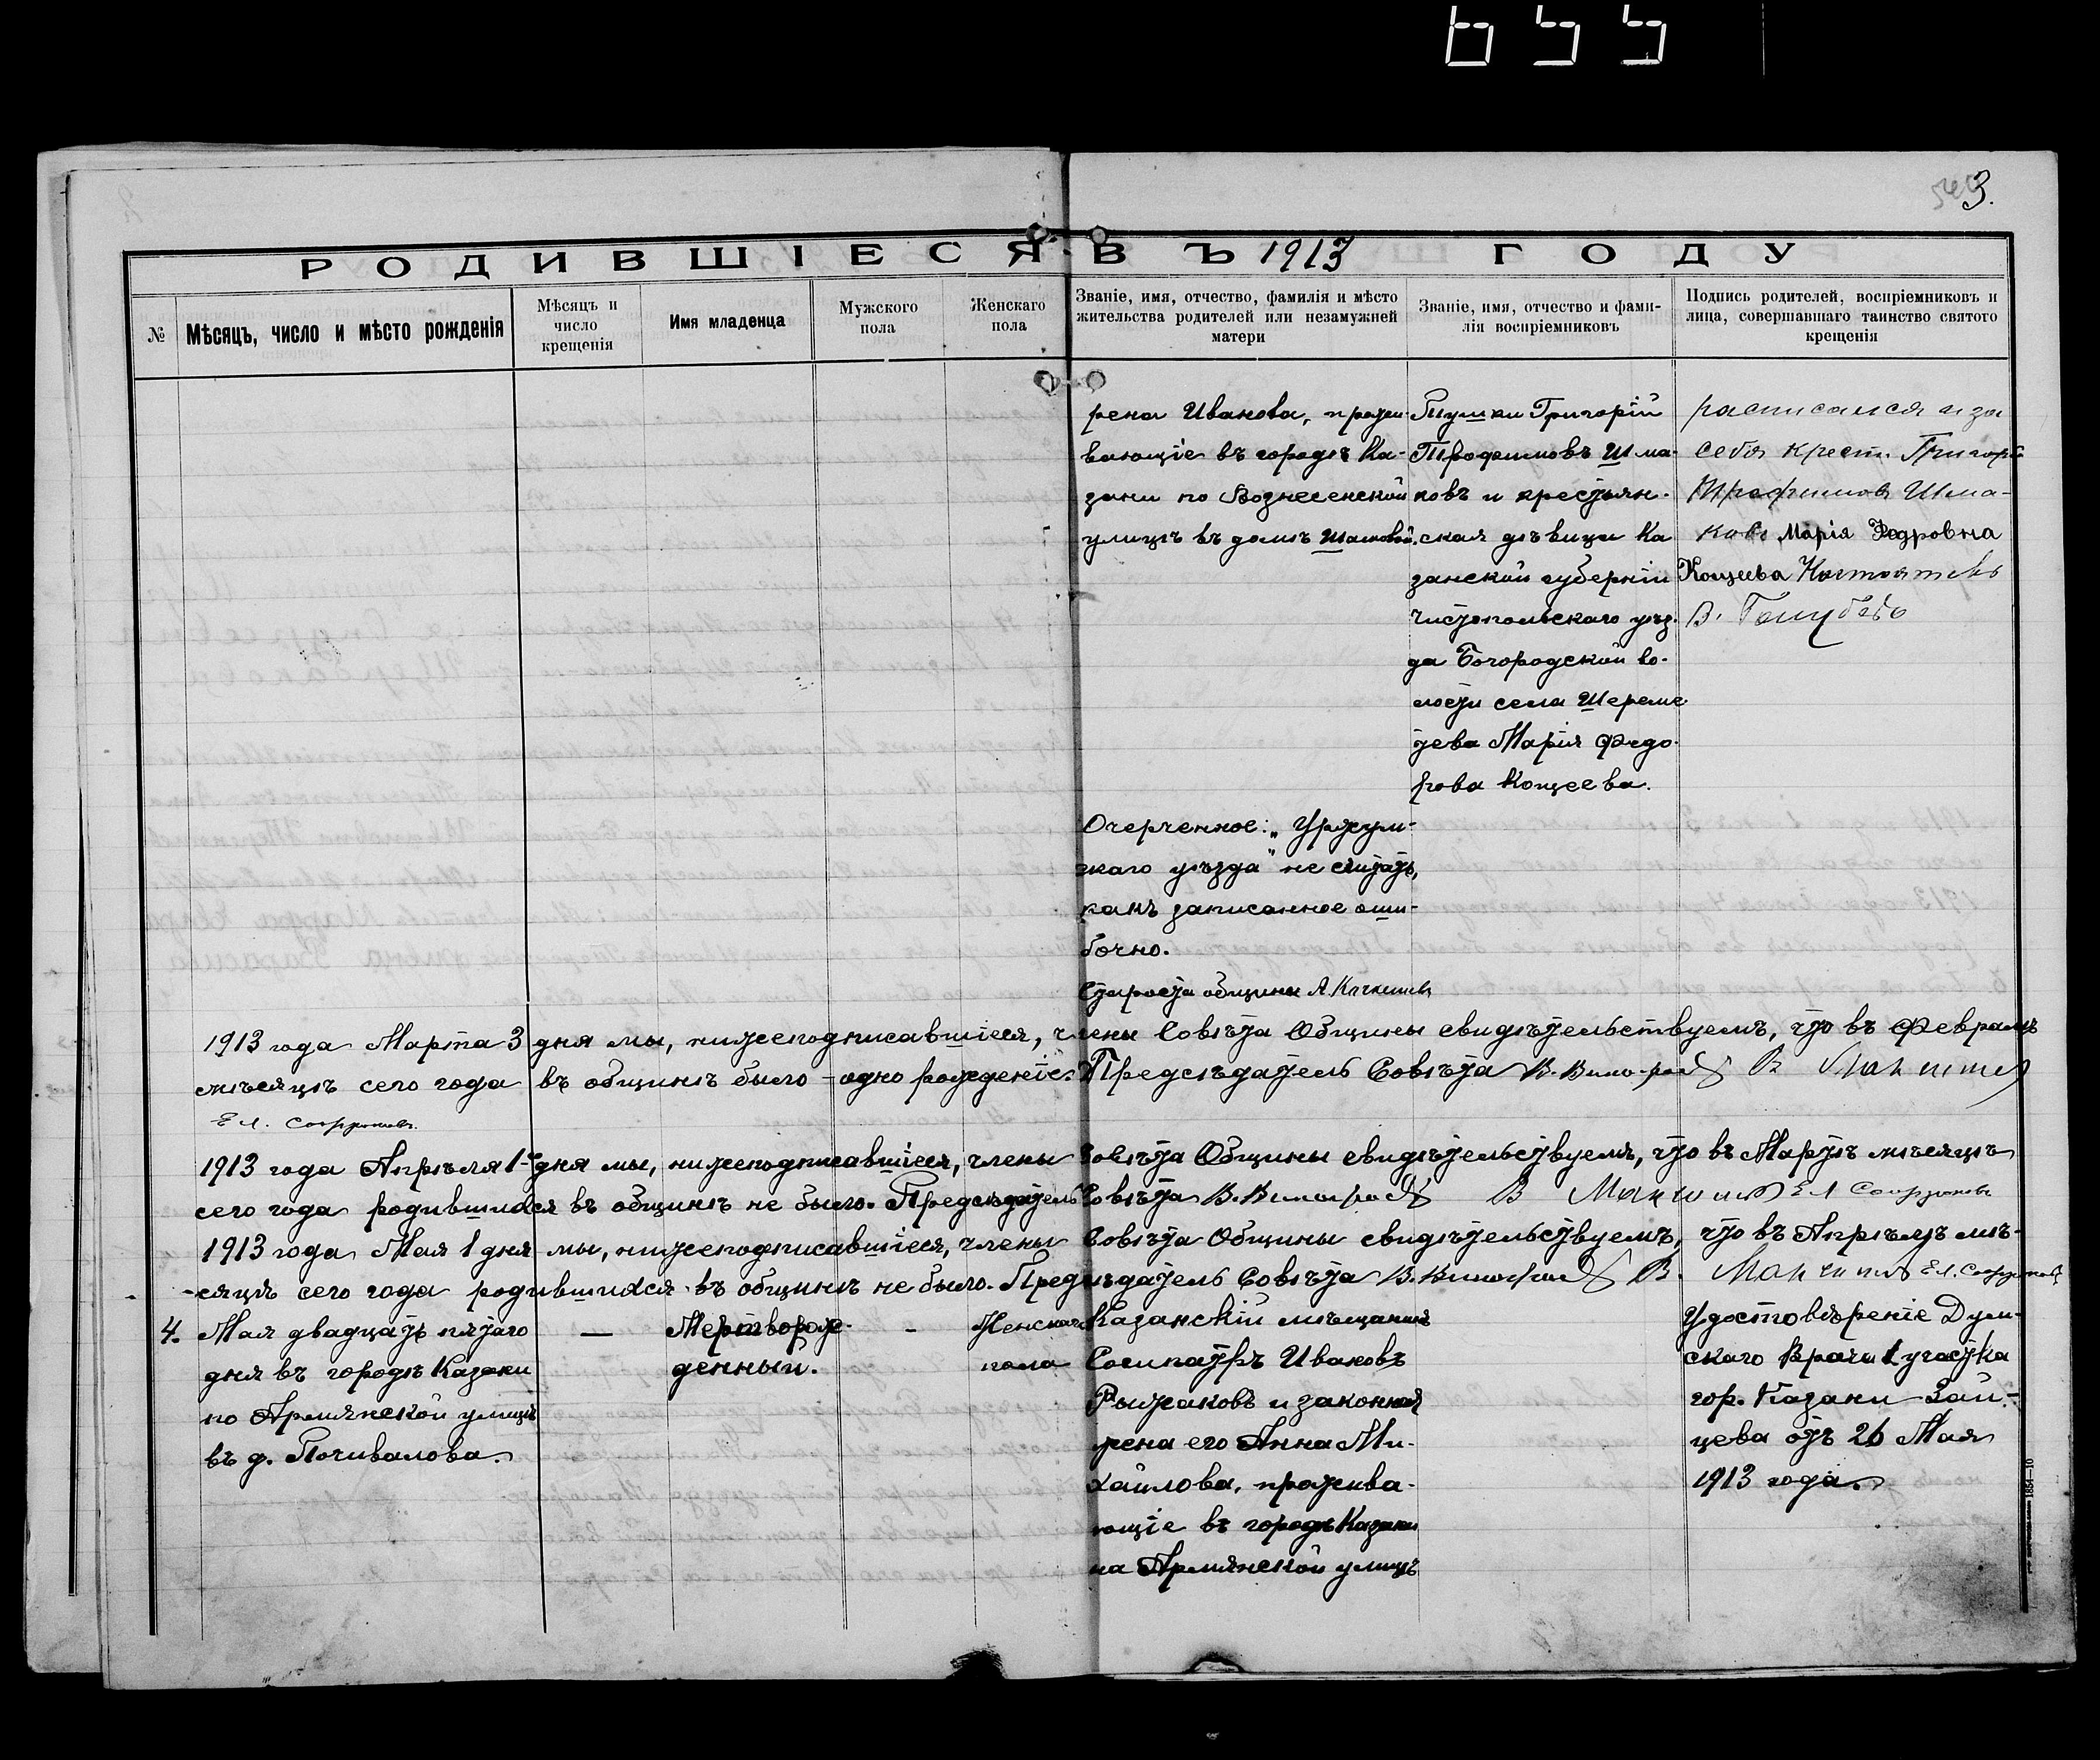 3.
РОДИВШІЕСЯ ВЪ 1913 ГОДУ
№
Мѣсяцъ, число и мѣсто рожденія
Мѣсяцъ и
число
крещенія
Имя младенца
Мужского
пола
Женскаго
пола
Званіе, имя, отчество, фамилія и мѣсто
жительства родителей или незамужней
матери
Званіе, имя, отчество и фами-
лія воспріемниковъ
Подпись родителей, воспріемниковъ и
лица, совершавшаго таинство святого
крещенія
рена Иванова, прожи-
вающіе въ городѣ Ка-
зани по Вознесенской
улицѣ въ домѣ
Григорій
Трофимовъ Шма-
ковъ и крестьян-
ская дѣвица Ка
занской губерніи
Чистопольскаго уѣз-
да Богородской во-
лости села Шереме
тева Марія Федо-
рова Кощеева.
расписался и за
себя крест. Григорій
Трофимовъ Шма-
ковъ Марія Федровна
Кощеева
В. Голубевъ
Очерченное: „Уржум-
скаго уѣзда" не считать,
какъ записанное оши-
бочно.
Староста общины А.
1913 года Марта 3 дня мы, нижеподписавшіеся, члены Совѣта Общины свидѣтельствуемъ, что въ Февралѣ
мѣсяцѣ сего года въ общинѣ было одно рожденіе. Предсѣдатель Совѣта В. Виноградовъ В
Ел. Сафроновъ
1913 года Апрѣля 1-го дня мы, нижеподписавшіеся, члены Совѣта Общины свидѣтельствуемъ, что въ Мартѣ мѣсяцѣ
сего года родившихся въ общинѣ не было. Предсѣдатель Совѣта В. Виноградовъ В Ел Сафроновъ
1913 года Мая 1 дня мы, нижеподписавшіеся, члены Совѣта Общины свидѣтельствуемъ, что въ Апрѣлѣ мѣ-
сяцѣ сего года родившихся въ общинѣ не было. Предсѣдатель Совѣта В. Виноградовъ В. Ел. Сафроновъ
4.
Мая двадцать пятаго
дня въ городѣ Казани
по Армянской улицѣ
въ д. Почивалова.
—
Мертворож-
денный.
-
Женскаго
пола
Казанскій мѣщанинъ
Сосипатръ Ивановъ
Рыжаковъ и законная
жена его Анна Ми-
хайлова, прожива-
ющіе въ городѣ Казани
на Армянской улицѣ
Удостовѣреніе Дум-
скаго Врача 1 участка
гор. Казани Зай-
цева отъ 26 Мая
1913 года.